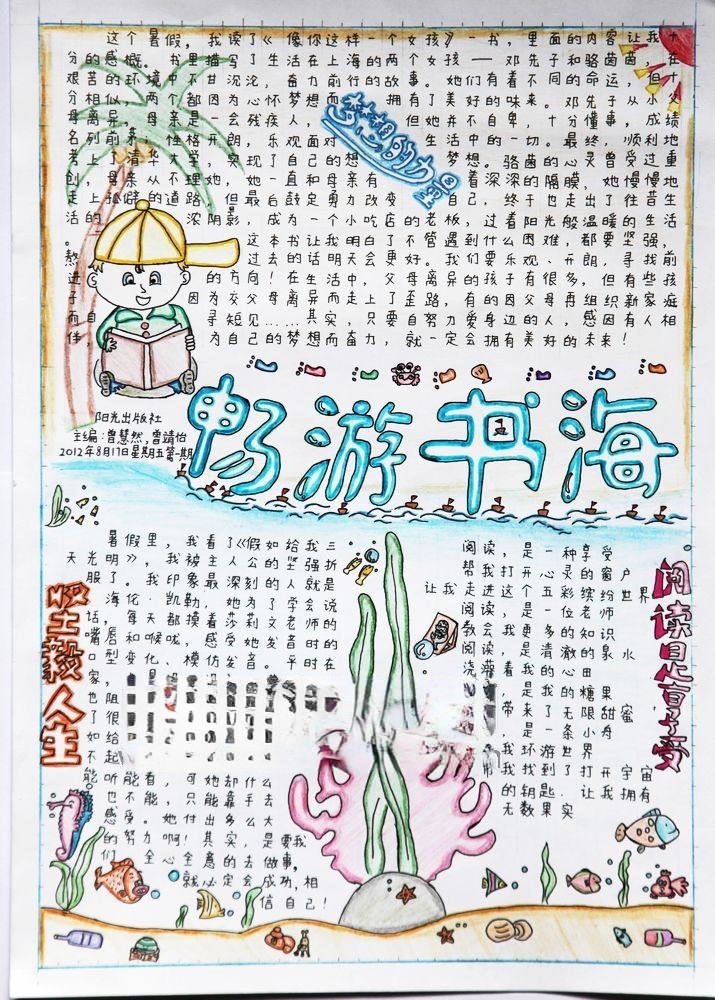 这个暑假，我读了《像你这样一个女孩》一书，里面的内容让我十
分的感慨。书里描写了生活在上海的两个女孩——邓先子和骆茵茵，在十
艰苦的环境中不甘沉沦，奋力前行的故事。她们有着不同的命运，但
分相似，两个都因为心怀梦想而 拥有了美好的味来。邓先子从小父
母离异，母亲是一么残疾人， 但她并不自卑，十分懂事，成绩
名列前茅，性格开朗，乐观面对 生活中的一切。最终，顺利地
考上了清华大学，实现了自己的想 梦想。骆茵的心灵曾受过重
创，母亲从不理她，她一直和母亲有 着深深的隔膜，她慢慢地
走上孤僻的道路，但最后鼓足勇力改变 自己，终于也走出了往昔生
活的 浓阴影，成为一个小吃店的老板，过着阳光般温暖的生活
。 这本书让我明白了不管遇到什么困难，都要坚强，
熬 过去的话明天会更好。我们要乐观、开朗，寻找前
进 的方向！在生活中，父母离异的孩子有很多，但有些孩
子 因为交父母离异而走上了歪路，有的因父母再组织新家庭
而自 寻短见……其实，只要自努力爱身边的人，感因有人相
伴， 为自己的梦想而奋力，就一定会拥有美好的未来！
梦想的力量
阳光出版社
主编：曾慧然，曾靖怡
2012年8月17日星期五第一期
畅游书海
暑假里，我看了《假如给我三
天光明》，我被主人公的坚强折
服了。我印象最深刻的人就是
海伦·凯勒，她为了学会说
话，每天都摸着莎莉文老师的
嘴唇和喉咙，感受她发音时的
口型变化、模仿发音。平时在
家，
也阻
了很
如给
不起
能听能看，可她却什么
也不能，只能靠手去
感受。她付出多么大
的努力啊！其实，是要我
们 全心全意的去做事，
就必定会成功，相
信自己！
坚毅人生
阅读，是一种享受
帮我打开心灵的窗户
让我走进这个五彩缤纷世界
阅读，是一位老师
教会我更多的知识
阅读，是清澈的泉水
浇灌着我的心田
，是我的糖果
带来了无限甜蜜
，是一条小舟
我环游世界
我找到了打开宇宙
的钥匙．让我拥有
无数果实
阅读是享受